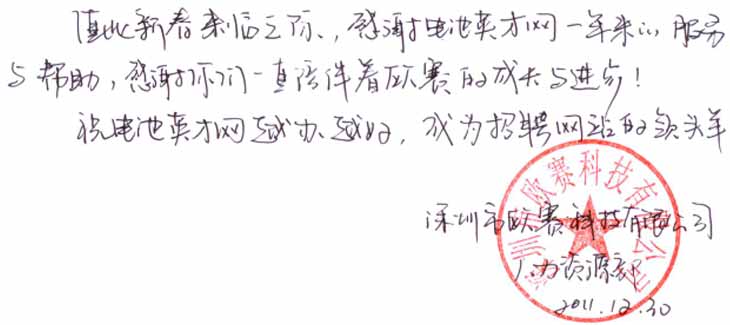 值此新春来临之际,感谢电池英才网一年来的服务
与帮助,感谢你们一直陪伴着欧赛的成长与进步!
祝电池英才网越办越好,成为招聘网站的领头羊
深圳市欧赛科技有限公司
人力资源部
2011.12.30
深圳市欧赛科技有限公司